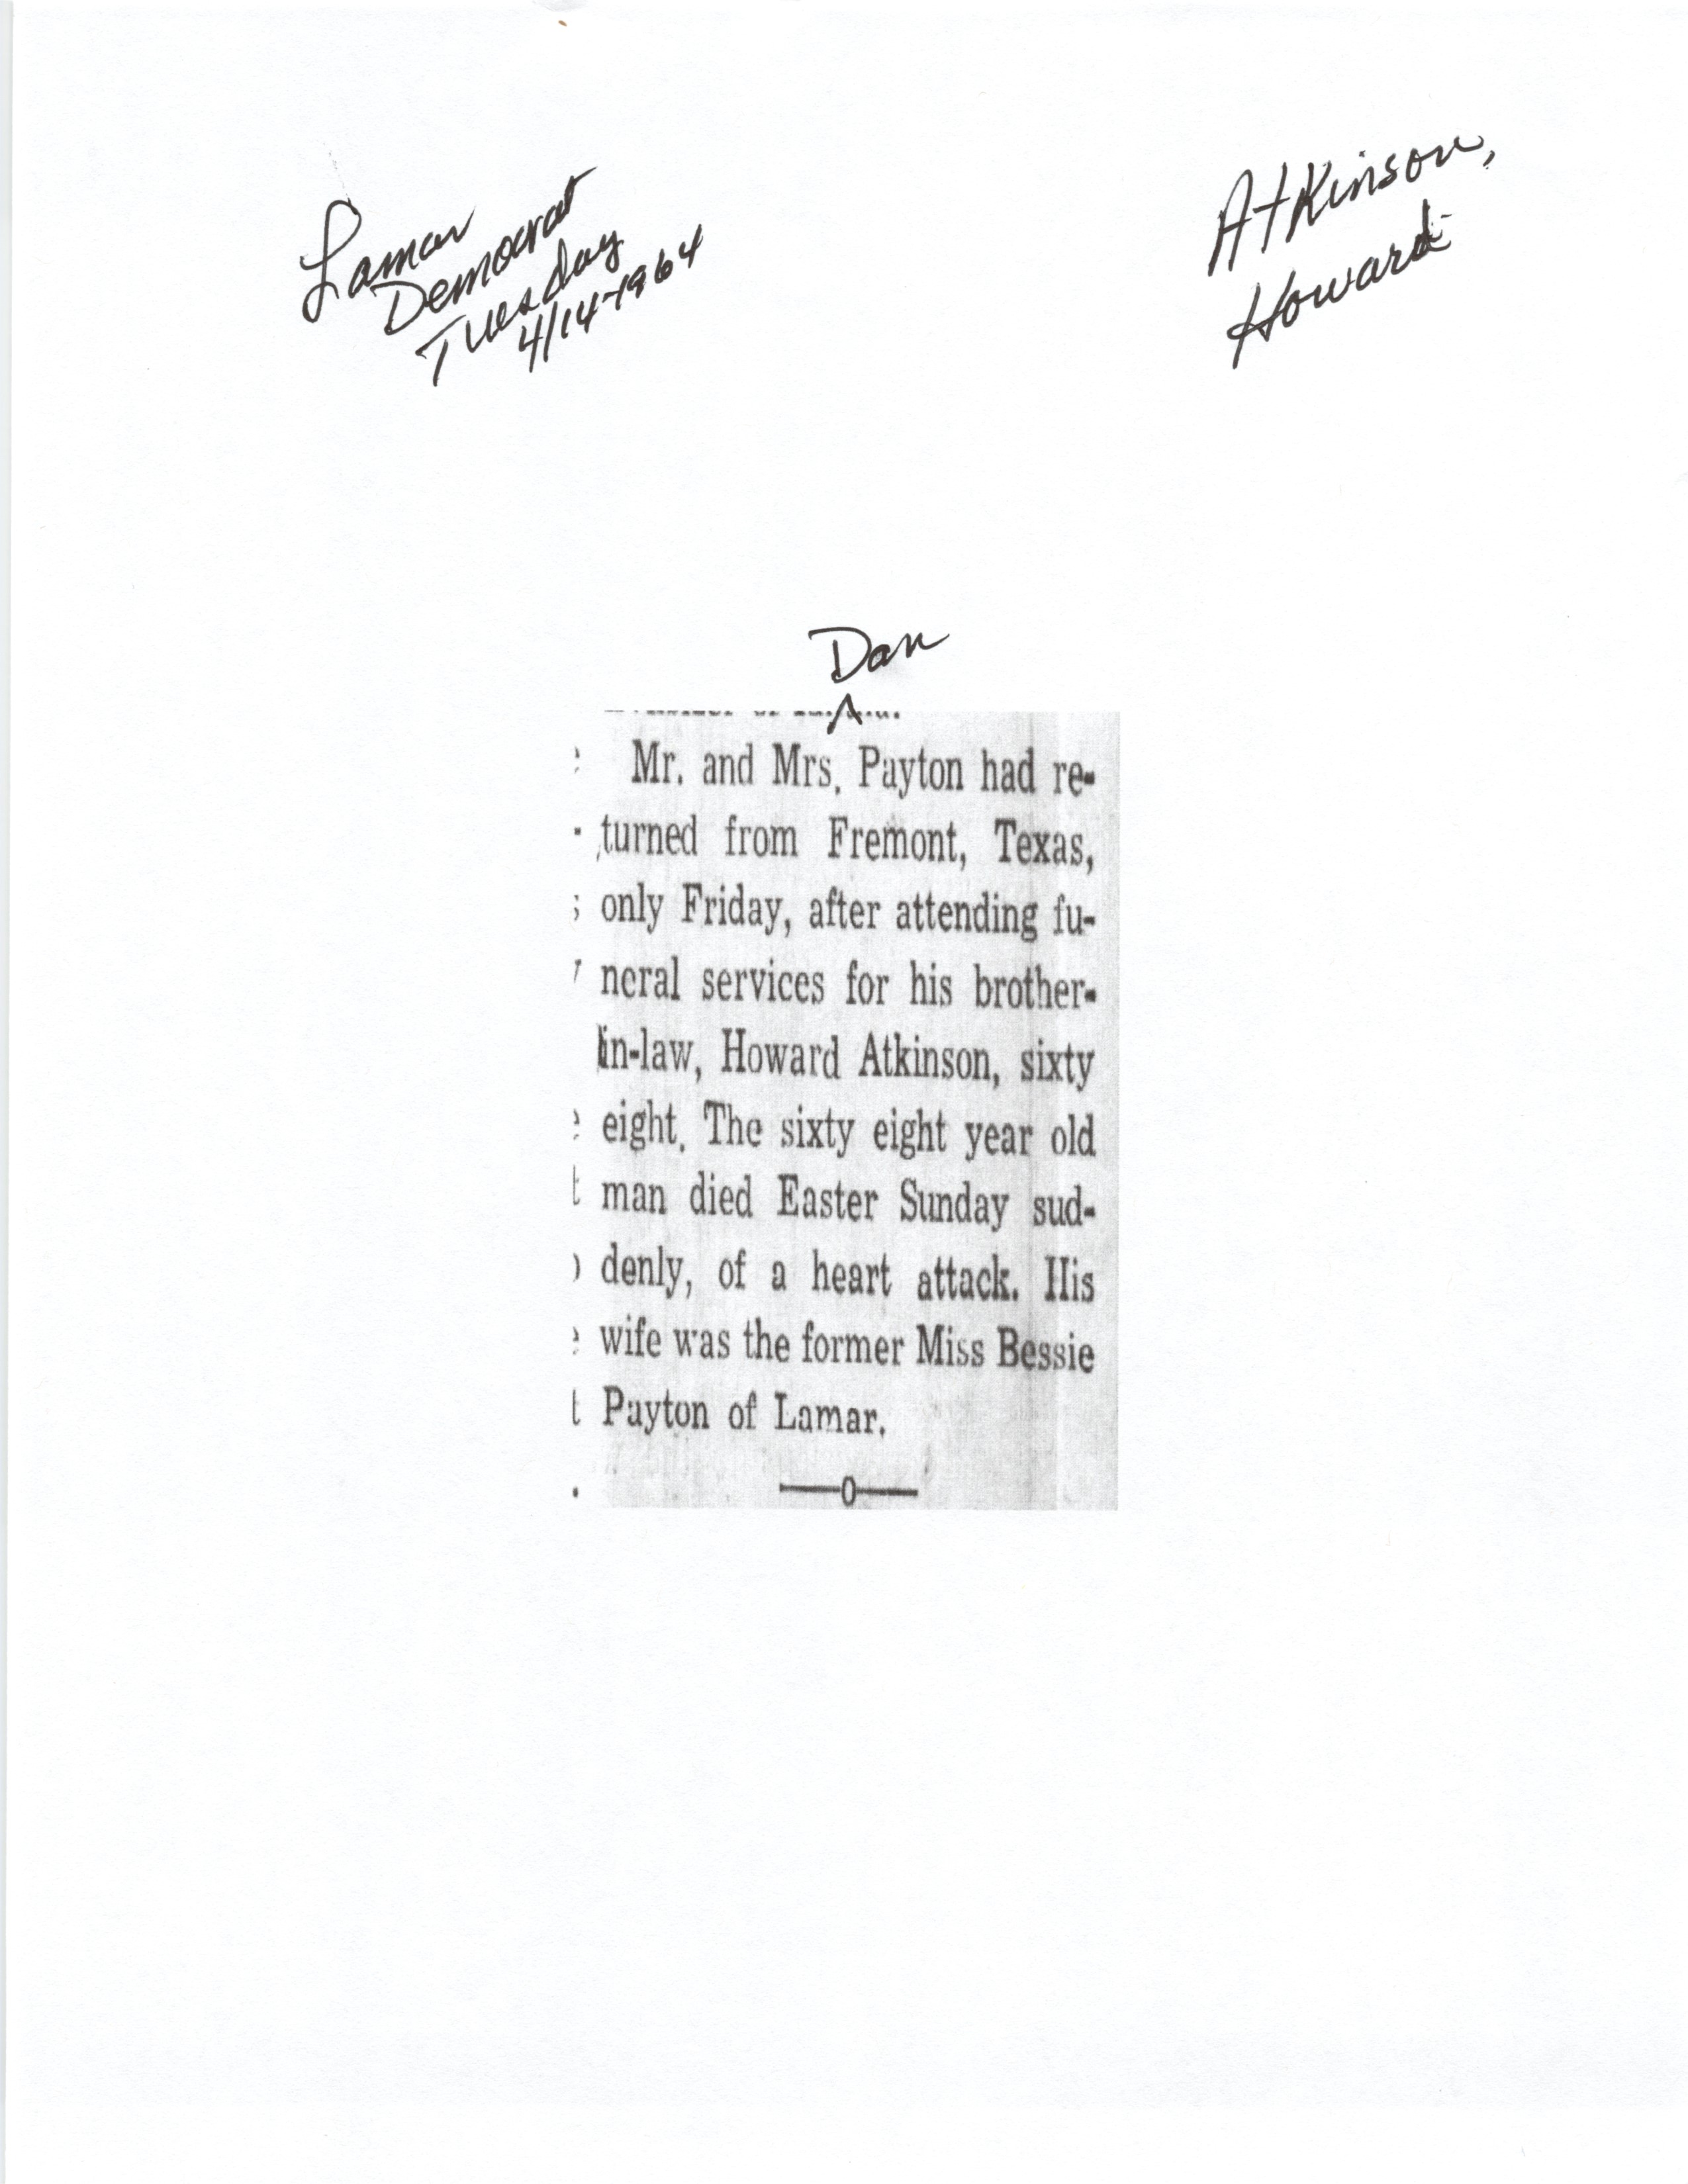 Lamar
Democrat
Tuesday
4/14-1964
Atkinson,
Howard
Dan
^
Mr. and Mrs. Payton had re-
turned from Fremont, Texas,
only Friday, after attending fu-
neral services for his brother-
in-law, Howard Atkinson, sixty
eight. The sixty eight year old
man died Easter Sunday sud-
denly, of a heart attack. His
wife was the former Miss Bessie
Payton of Lamar.
—o—